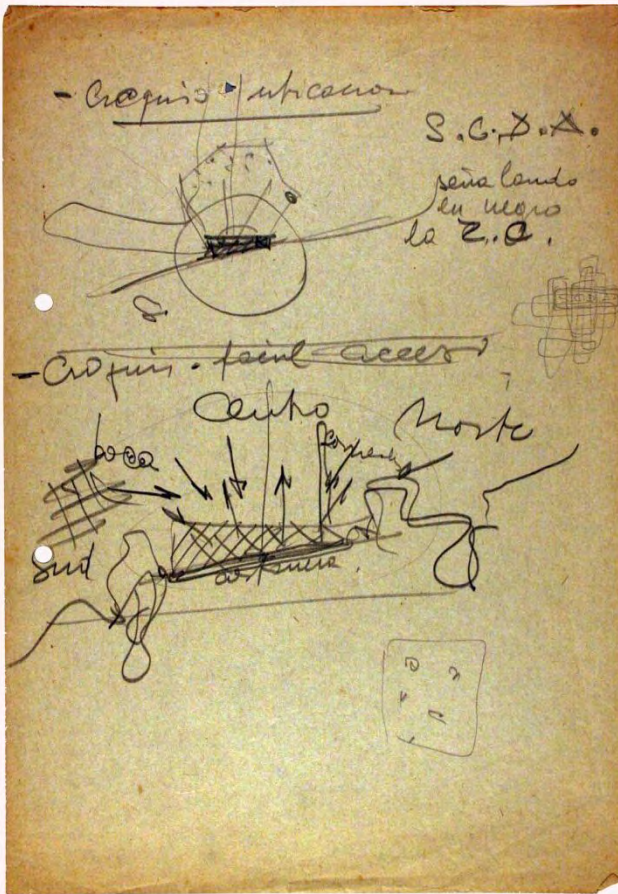 - Croquis ubicacion
S.C.D.A.
señalando
en negro
la Z.C.
- Croquis - facil acceso
Centro
Norte
boca
Sud
costanera.